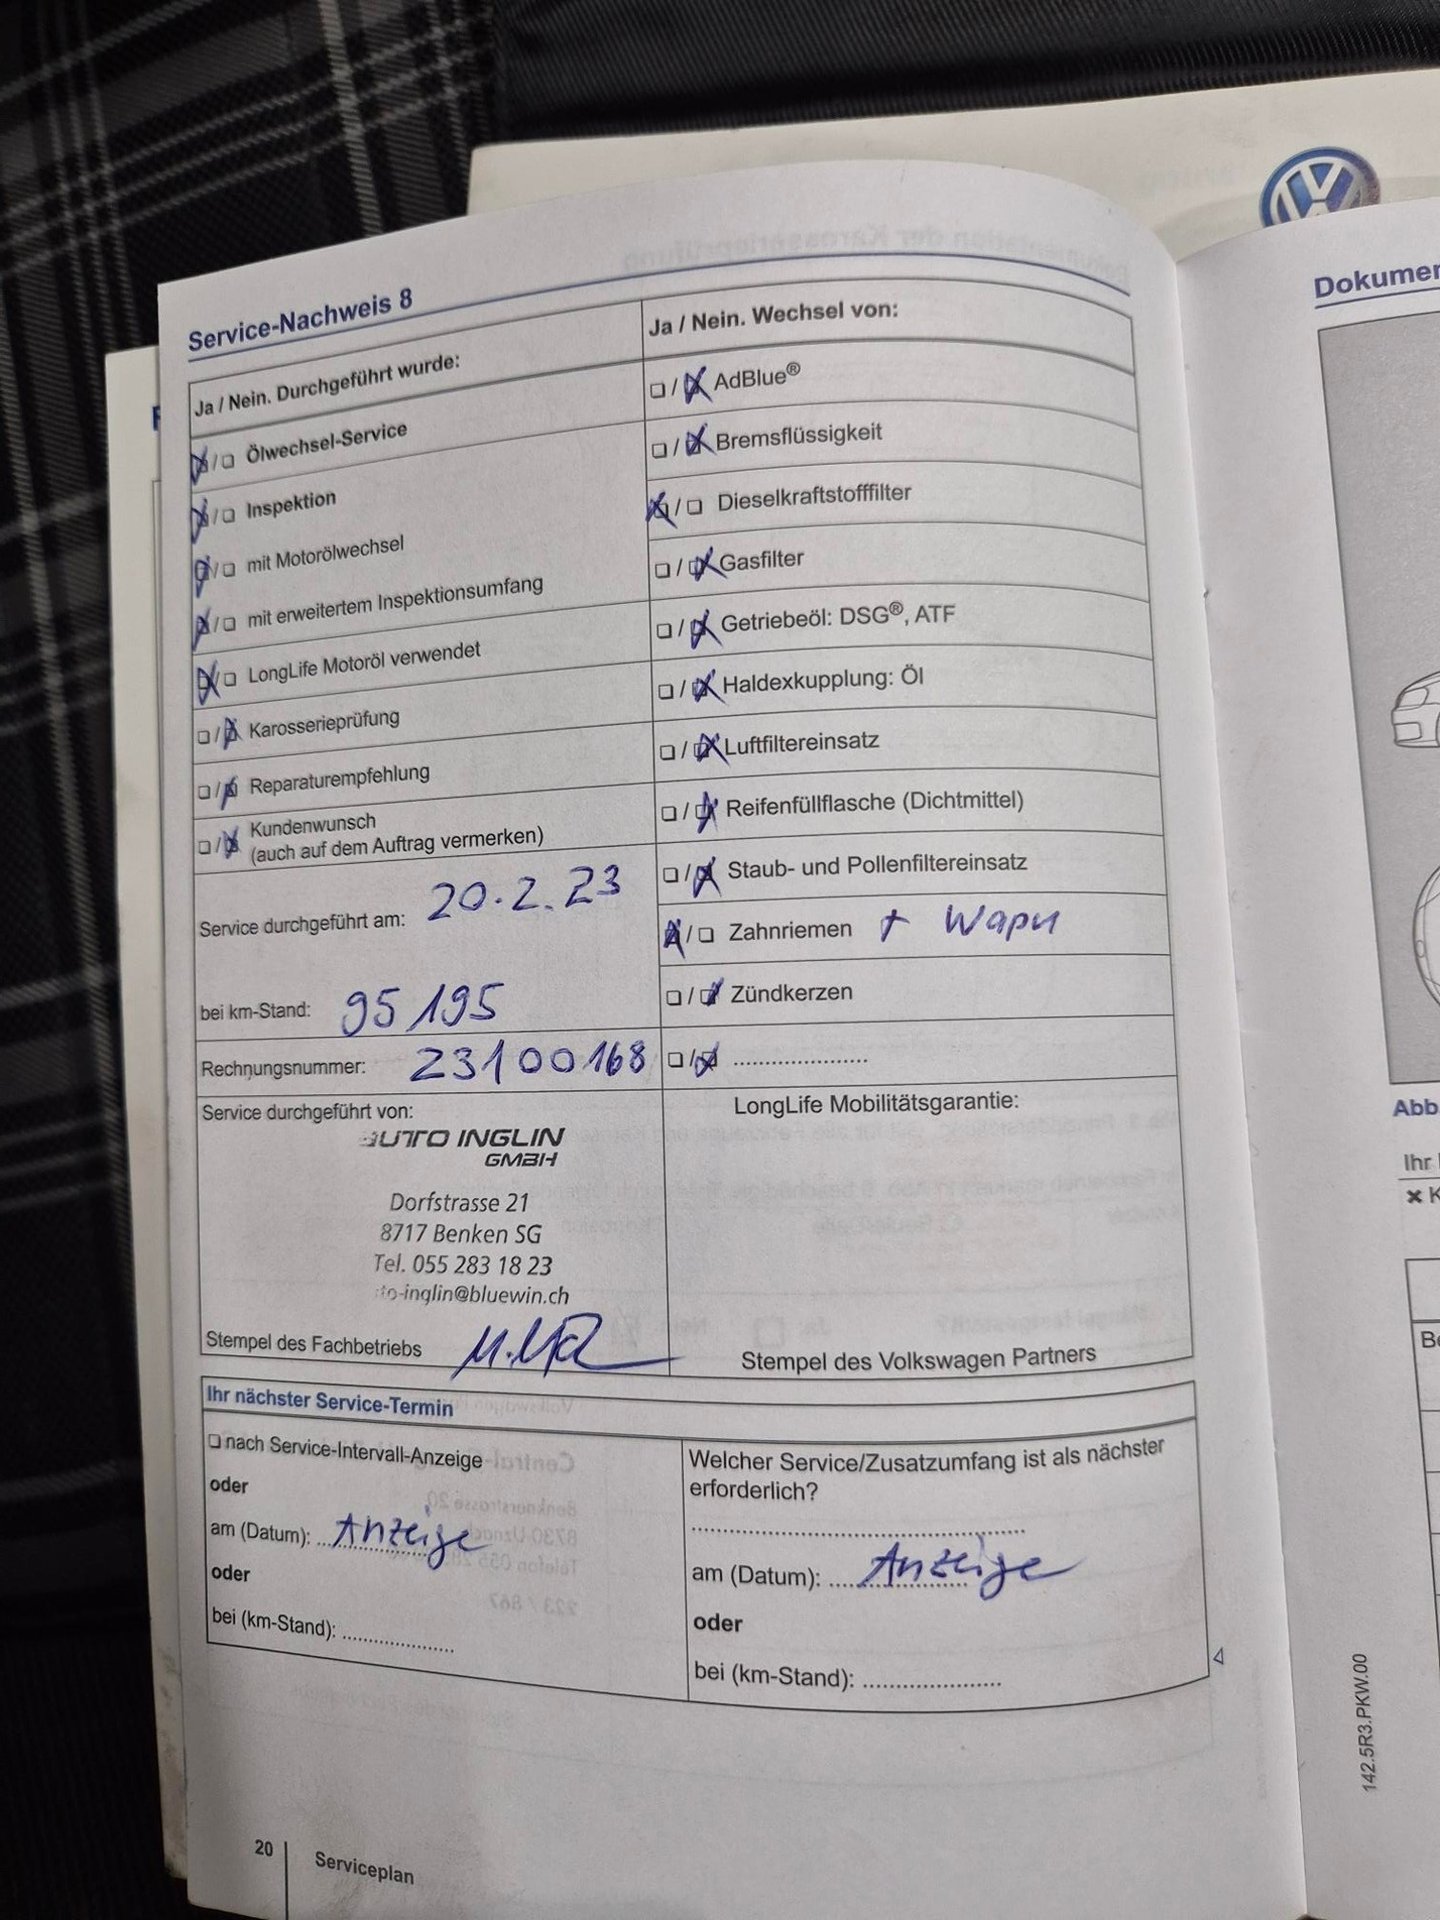 Service-Nachweis 8
Ja / Nein. Durchgeführt wurde:
☒/❏ Ölwechsel-Service
☒/❏ Inspektion
☒/❏ mit Motorölwechsel
☒/❏ mit erweitertem Inspektionsumfang
☒/❏ LongLife Motoröl verwendet
❏/☒ Karosserieprüfung
❏/☒ Reparaturempfehlung
❏/☒ Kundenwunsch
(auch auf dem Auftrag vermerken)
Service durchgeführt am: 20.2.23
bei km-Stand: 95195
Rechnungsnummer: 23100168
Service durchgeführt von:
AUTO INGLIN
GMBH
Dorfstrasse 21
8717 Benken SG
Tel. 055 283 18 23
to-inglin@bluewin.ch
Stempel des Fachbetriebs
Ja / Nein. Wechsel von:
❏/☒ AdBlue®
❏/☒ Bremsflüssigkeit
☒/❏ Dieselkraftstofffilter
❏/☒ Gasfilter
❏/☒ Getriebeöl: DSG®, ATF
❏/☒ Haldexkupplung: Öl
❏/☒ Luftfiltereinsatz
❏/☒ Reifenfüllflasche (Dichtmittel)
❏/☒ Staub- und Pollenfiltereinsatz
☒/❏ Zahnriemen + Wapu
❏/☒ Zündkerzen
❏/☒ .....................
LongLife Mobilitätsgarantie:
Stempel des Volkswagen Partners
Ihr nächster Service-Termin
❏ nach Service-Intervall-Anzeige
oder
am (Datum): Anzeige
oder
bei (km-Stand): .....................
Welcher Service/Zusatzumfang ist als nächster
erforderlich?
am (Datum): Anzeige
oder
bei (km-Stand): .....................
20
Serviceplan
Dokumen
Abb
Ihr
142.5R3.PKW.00